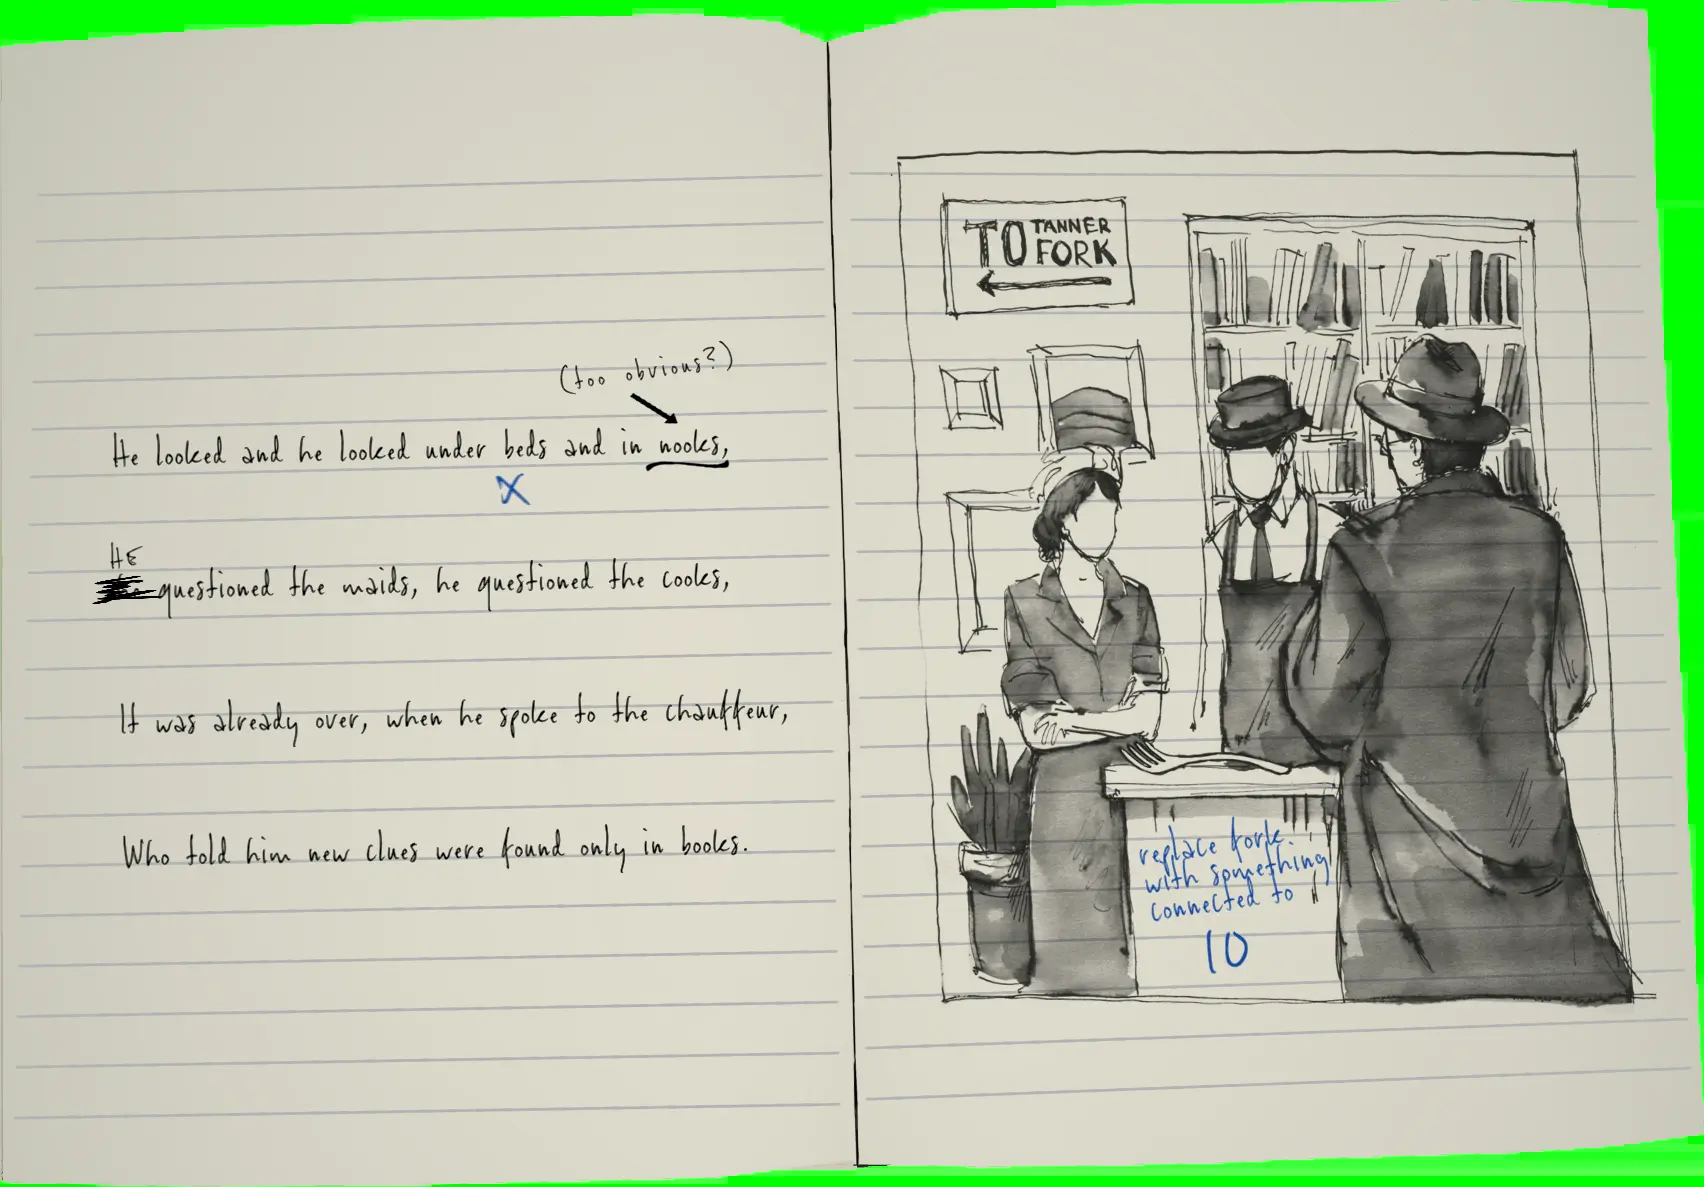 (too obvious?)
He looked and he looked under beds and in nooks,
X
HE
questioned the maids, he questioned the cooks,
It was already over, when he spoke to the chauffeur,
Who told him new clues were found only in books.
TO TANNER FORK
replace fork.
with something
connected to
10